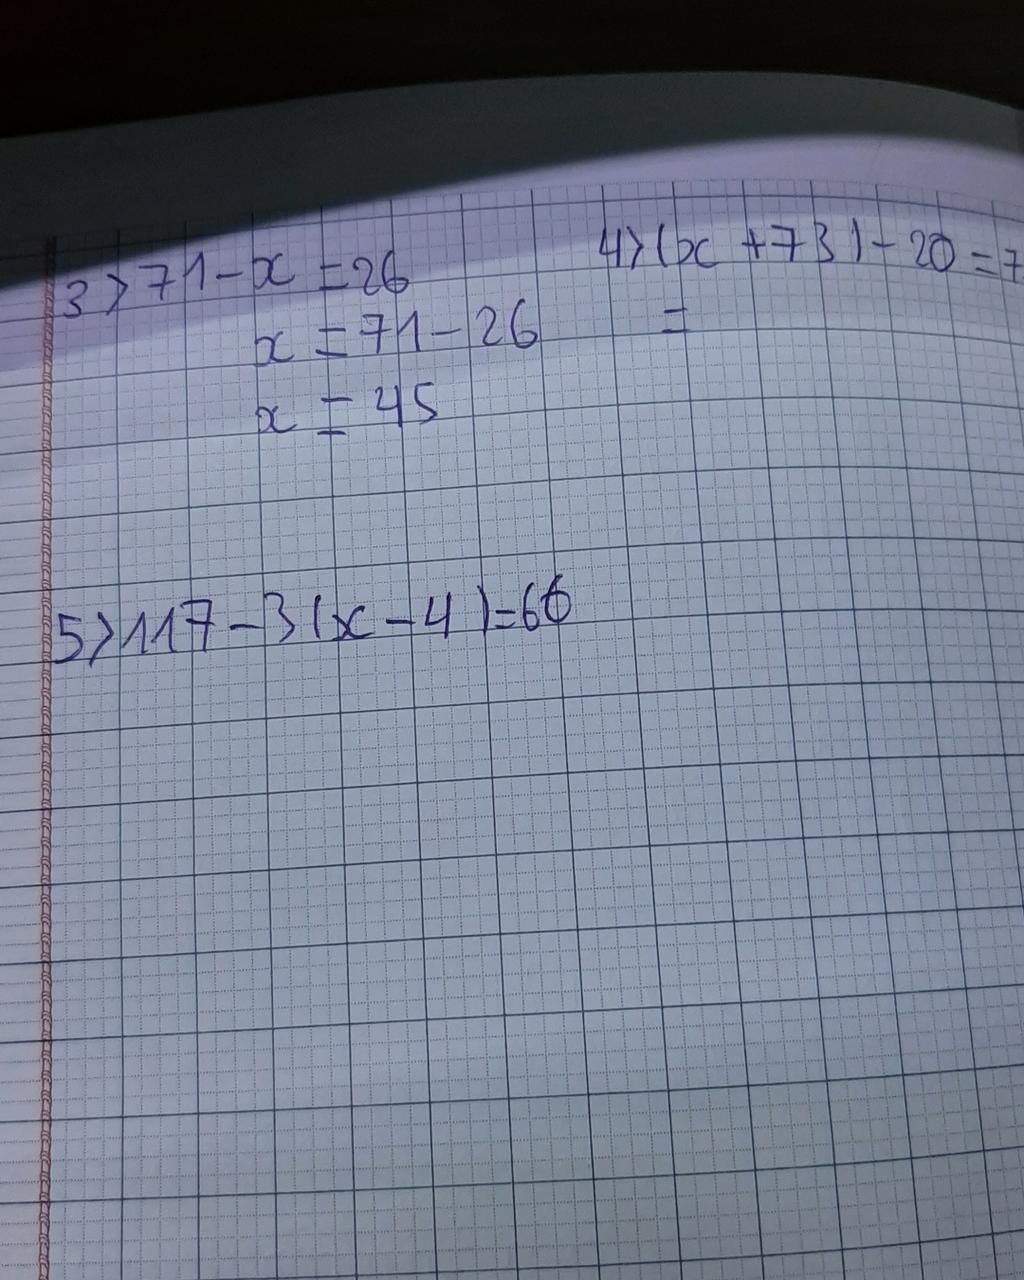 3> 71 - x = 26
x = 71 - 26
x = 45
4> (x + 73) - 20 = 7
=
5> 117 - 3(x - 4) = 66